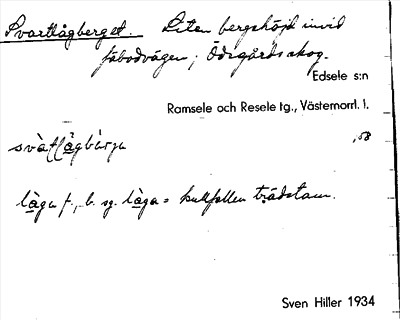 Svartlågberget. Liten bergshöjd invid
fäbodvägen; Ödsgårds skog.
Edsele s:n
Ramsele och Resele tg., Västernorrl. l.
svàt(l)ågbàrjₑ ,58
låga f., b. sg. låga = kullfallen trädstam.
Sven Hiller 1934